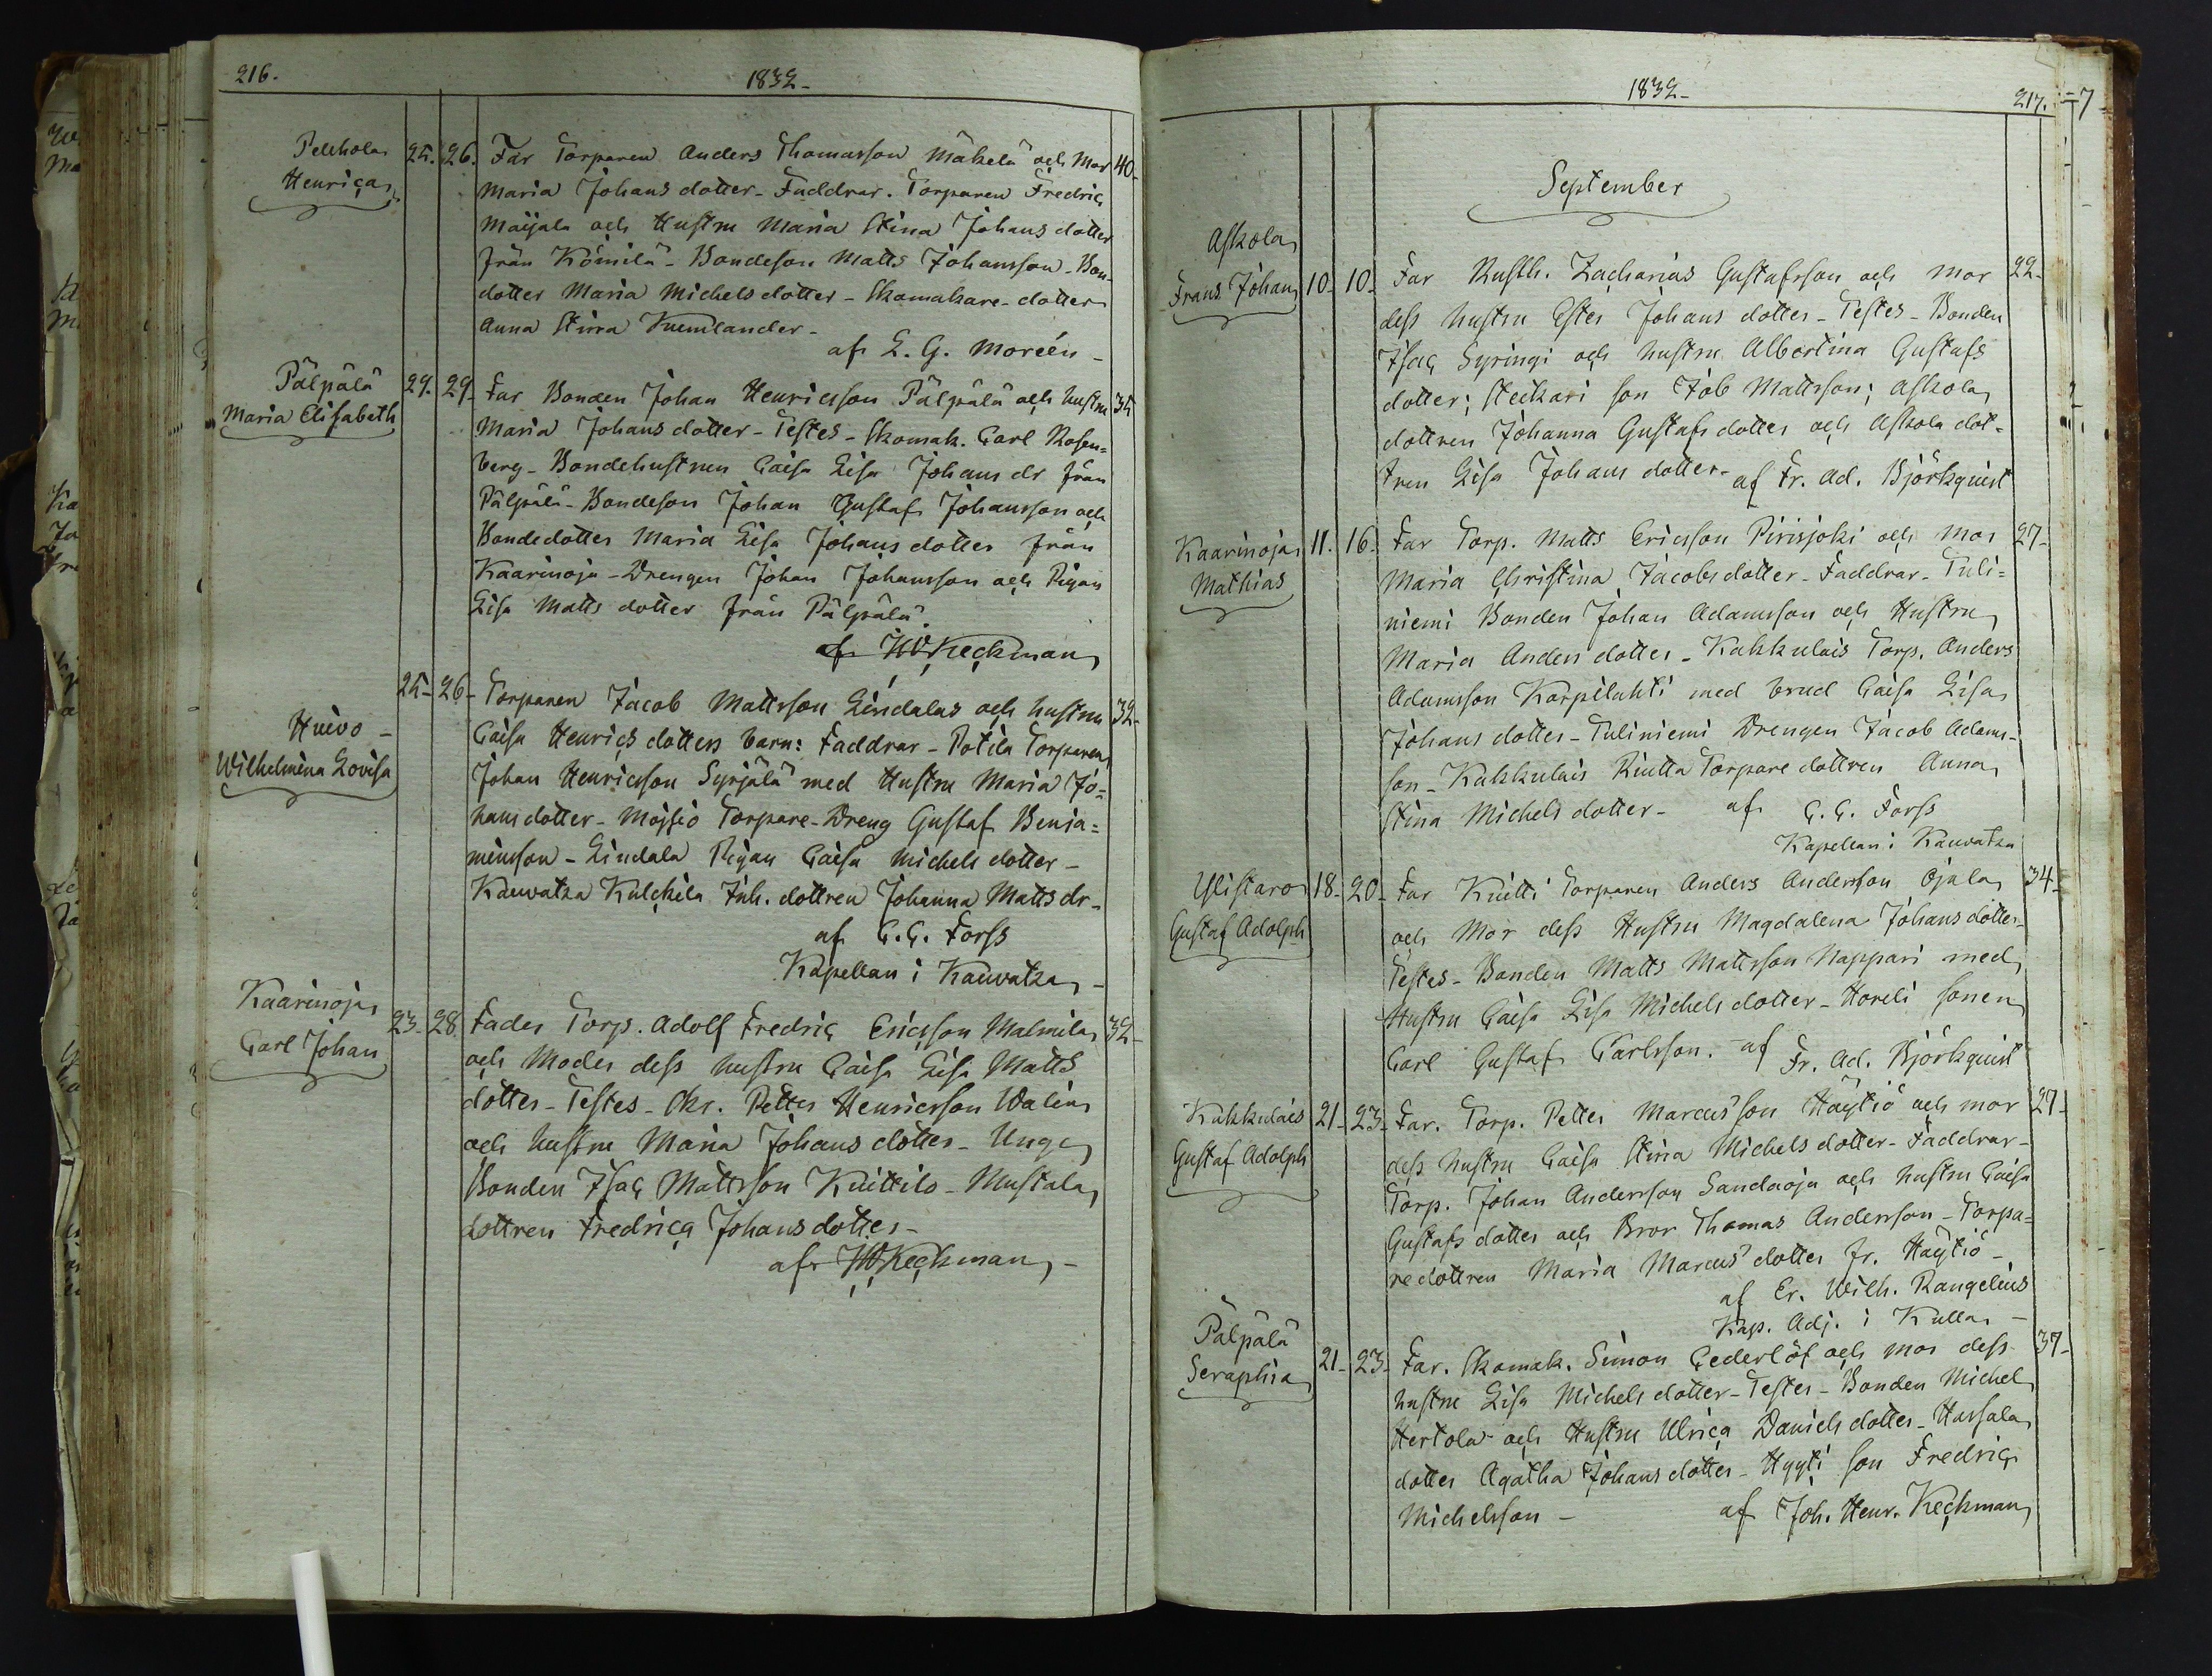 216.
1832-
Pelchola
Henrica
25. 26.
Far Torparen Anders Thomasson Mäkelä och Mor 40-
Maria Johansdotter- Faddrar. Torparen Fredric
Maijala och Hustru Maria Stina Johansdotter
från Kömilä- Bondeson Matts Johansson- Bon-
dotter Maria Michelsdotter- Skomakare-dotter
Anna Stina Kumlander-
af L. G. Moréen-
Pälpälä
Maria Elisabeth
29. 29-
Far Bonden Johan Henricsson Pälpälä och hustru 35
Maria Johansdotter- Testes- Skomak. Carl Rosen=
berg- Bondehustrun Caisa Lisa Johansdr från
Pälpälä- Bondeson Johan Gustaf Johansson och
Bondedotter Maria Lisa Johansdotter från
Kaarinoja- Drengen Johan Johansson och Pigan
Lisa Mattsdotter från Pälpälä.
af JHKeckman
Huivo-
Wilhelmina Lovisa
25- 26-
Torparen Jacob Mattsson Lindalas och hustru 32-
Caisa Henricsdotters barn: Faddrar- Potila Torparen
Johan Henricsson Syrjälä med Hustru Maria Jo=
hansdotter- Moisio Torpare-Dreng Gustaf Benja=
minsson- Lindala Pigan Caisa Michelsdotter-
Kauvatza Kulckila Inh. dottren Johanna Mattsdr-
af C. G. Forss
Kapellan i Kauvatza-
Kaarinoja
Carl Johan
23- 28
Fader Torp. Adolf Fredric Ericsson Malmila 32-
och Moder dess hustru Caisa Lisa Matts
dotter- Testes- Petter Henricsson Walin
och hustru Maria Johansdotter- Unga
Bonden Isac Mattsson Kuittilo- Mustala
dottren Fredrica Johansdotter-
af JHKeckman-
1832-
217.
7
September
Askola
Frans Johan
10- 10-
Far Rusth. Zacharias Gustafsson och mor 22-
dess hustru Ester Johansdotter- Testes- Bonden
Isac Syringi och hustru Albertina Gustafs
dotter; Steckari son Job Mattsson; Askola
dottren Johanna Gustafsdotter och Askola dot-
tren Lisa Johansdotter- af Fr. Ad. Björkquist
Kaarinoja
Mathias
11. 16.
Far Torp. Matts Ericsson Piirisjoki och mor 27-
Maria Christina Jacobsdotter- Faddrar- Tuli=
niemi Bonden Johan Adamsson och Hustru
Maria Andersdotter- Kukkulais Torp. Anders
Adamsson Karpilahti med brud Caisa Lisa
Johansdotter- Tuliniemi Drengen Jacob Adams-
son- Kukkulais Riutta Torparedottren Anna
Stina Michelsdotter- af C. G. Forss
Kapellan i Kauvatza
Ylistaro
Gustaf Adolph
18- 20-
Far Kuitti Torparen Anders Andersson Ojala 34-
och Mor dess Hustru Magdalena Johansdotter-
Testes- Bonden Matts Mattsson Nappari med
Hustru Caisa Lisa Michelsdotter- Horeli sonen
Carl Gustaf Carlsson. af Fr. Ad. Björkquist
Kukkulais
Gustaf Adolph
21- 23-
Far. Torp. Petter Marcusson Häytiö och mor 29-
dess hustru Caisa Stina Michelsdotter- Faddrar-
Torp. Johan Andersson Sandaoja och hustru Caisa
Gustafsdotter och Bror Thomas Andersson- Torpa=
redottren Maria Marcusdotter fr. Häytiö-
af Er. Wilh. Rangelius
Kap. Adj. i Kulla-
Pälpälä
Seraphia
21- 23-
Far. Skomak. Simon Cederlöf och mor dess 37-
hustru Lisa Michelsdotter- Testes- Bonden Michel
Hertola och Hustru Ulrica Danielsdotter- Hassala
dotter Agatha Johansdotter- Hyyti son Fredric
Michelsson- af Joh. Henr. Keckman